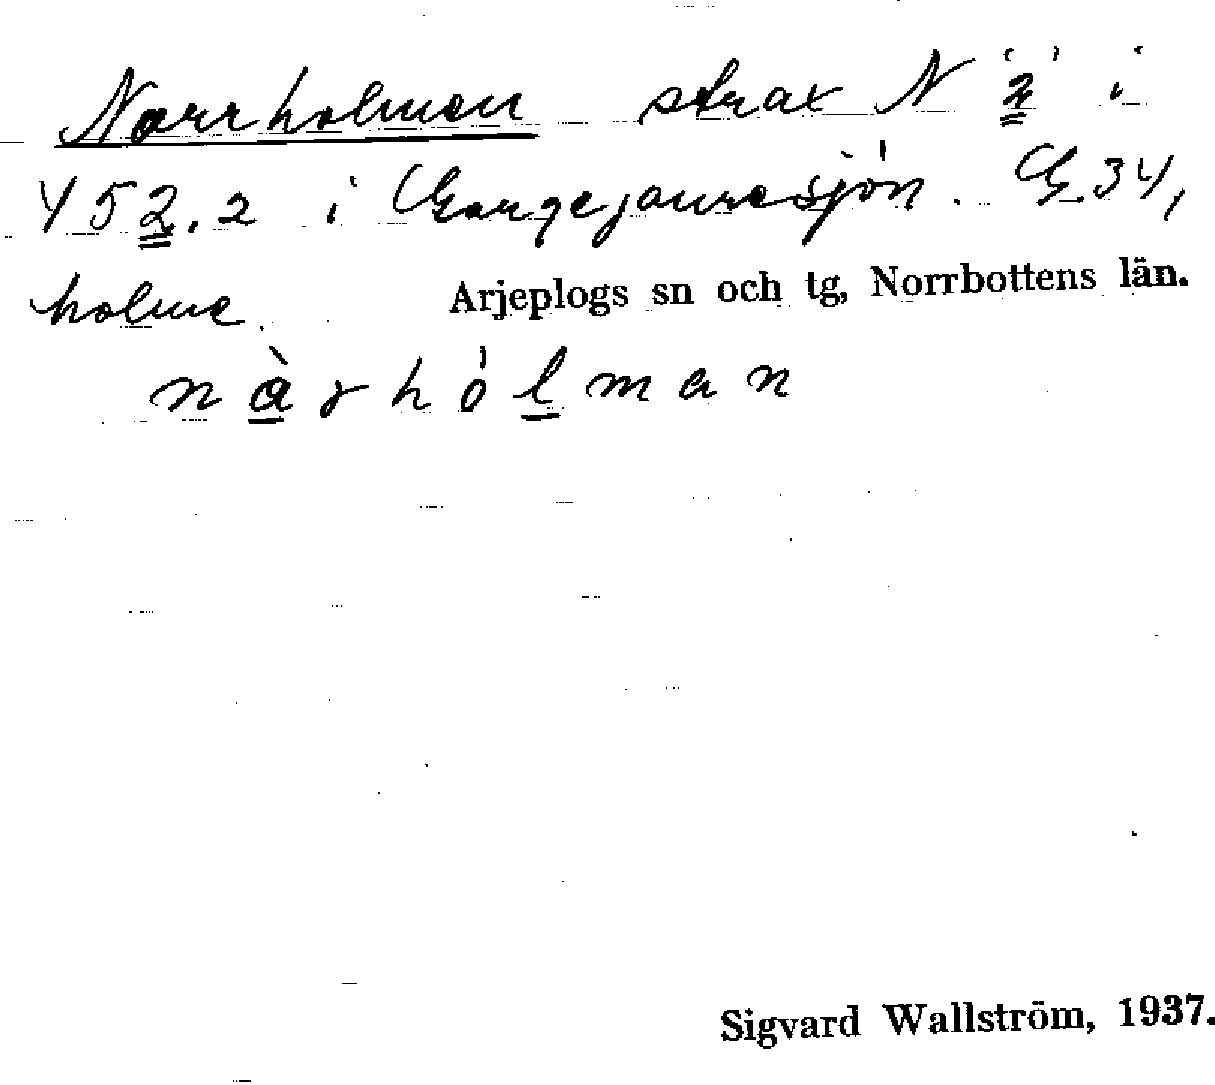 Norrholmen strax N '2' i
452.2 i Gargejauresjön. G.34,
holme.
Arjeplogs sn och tg, Norrbottens län.
nàrhólman
Sigvard Wallström, 1937.